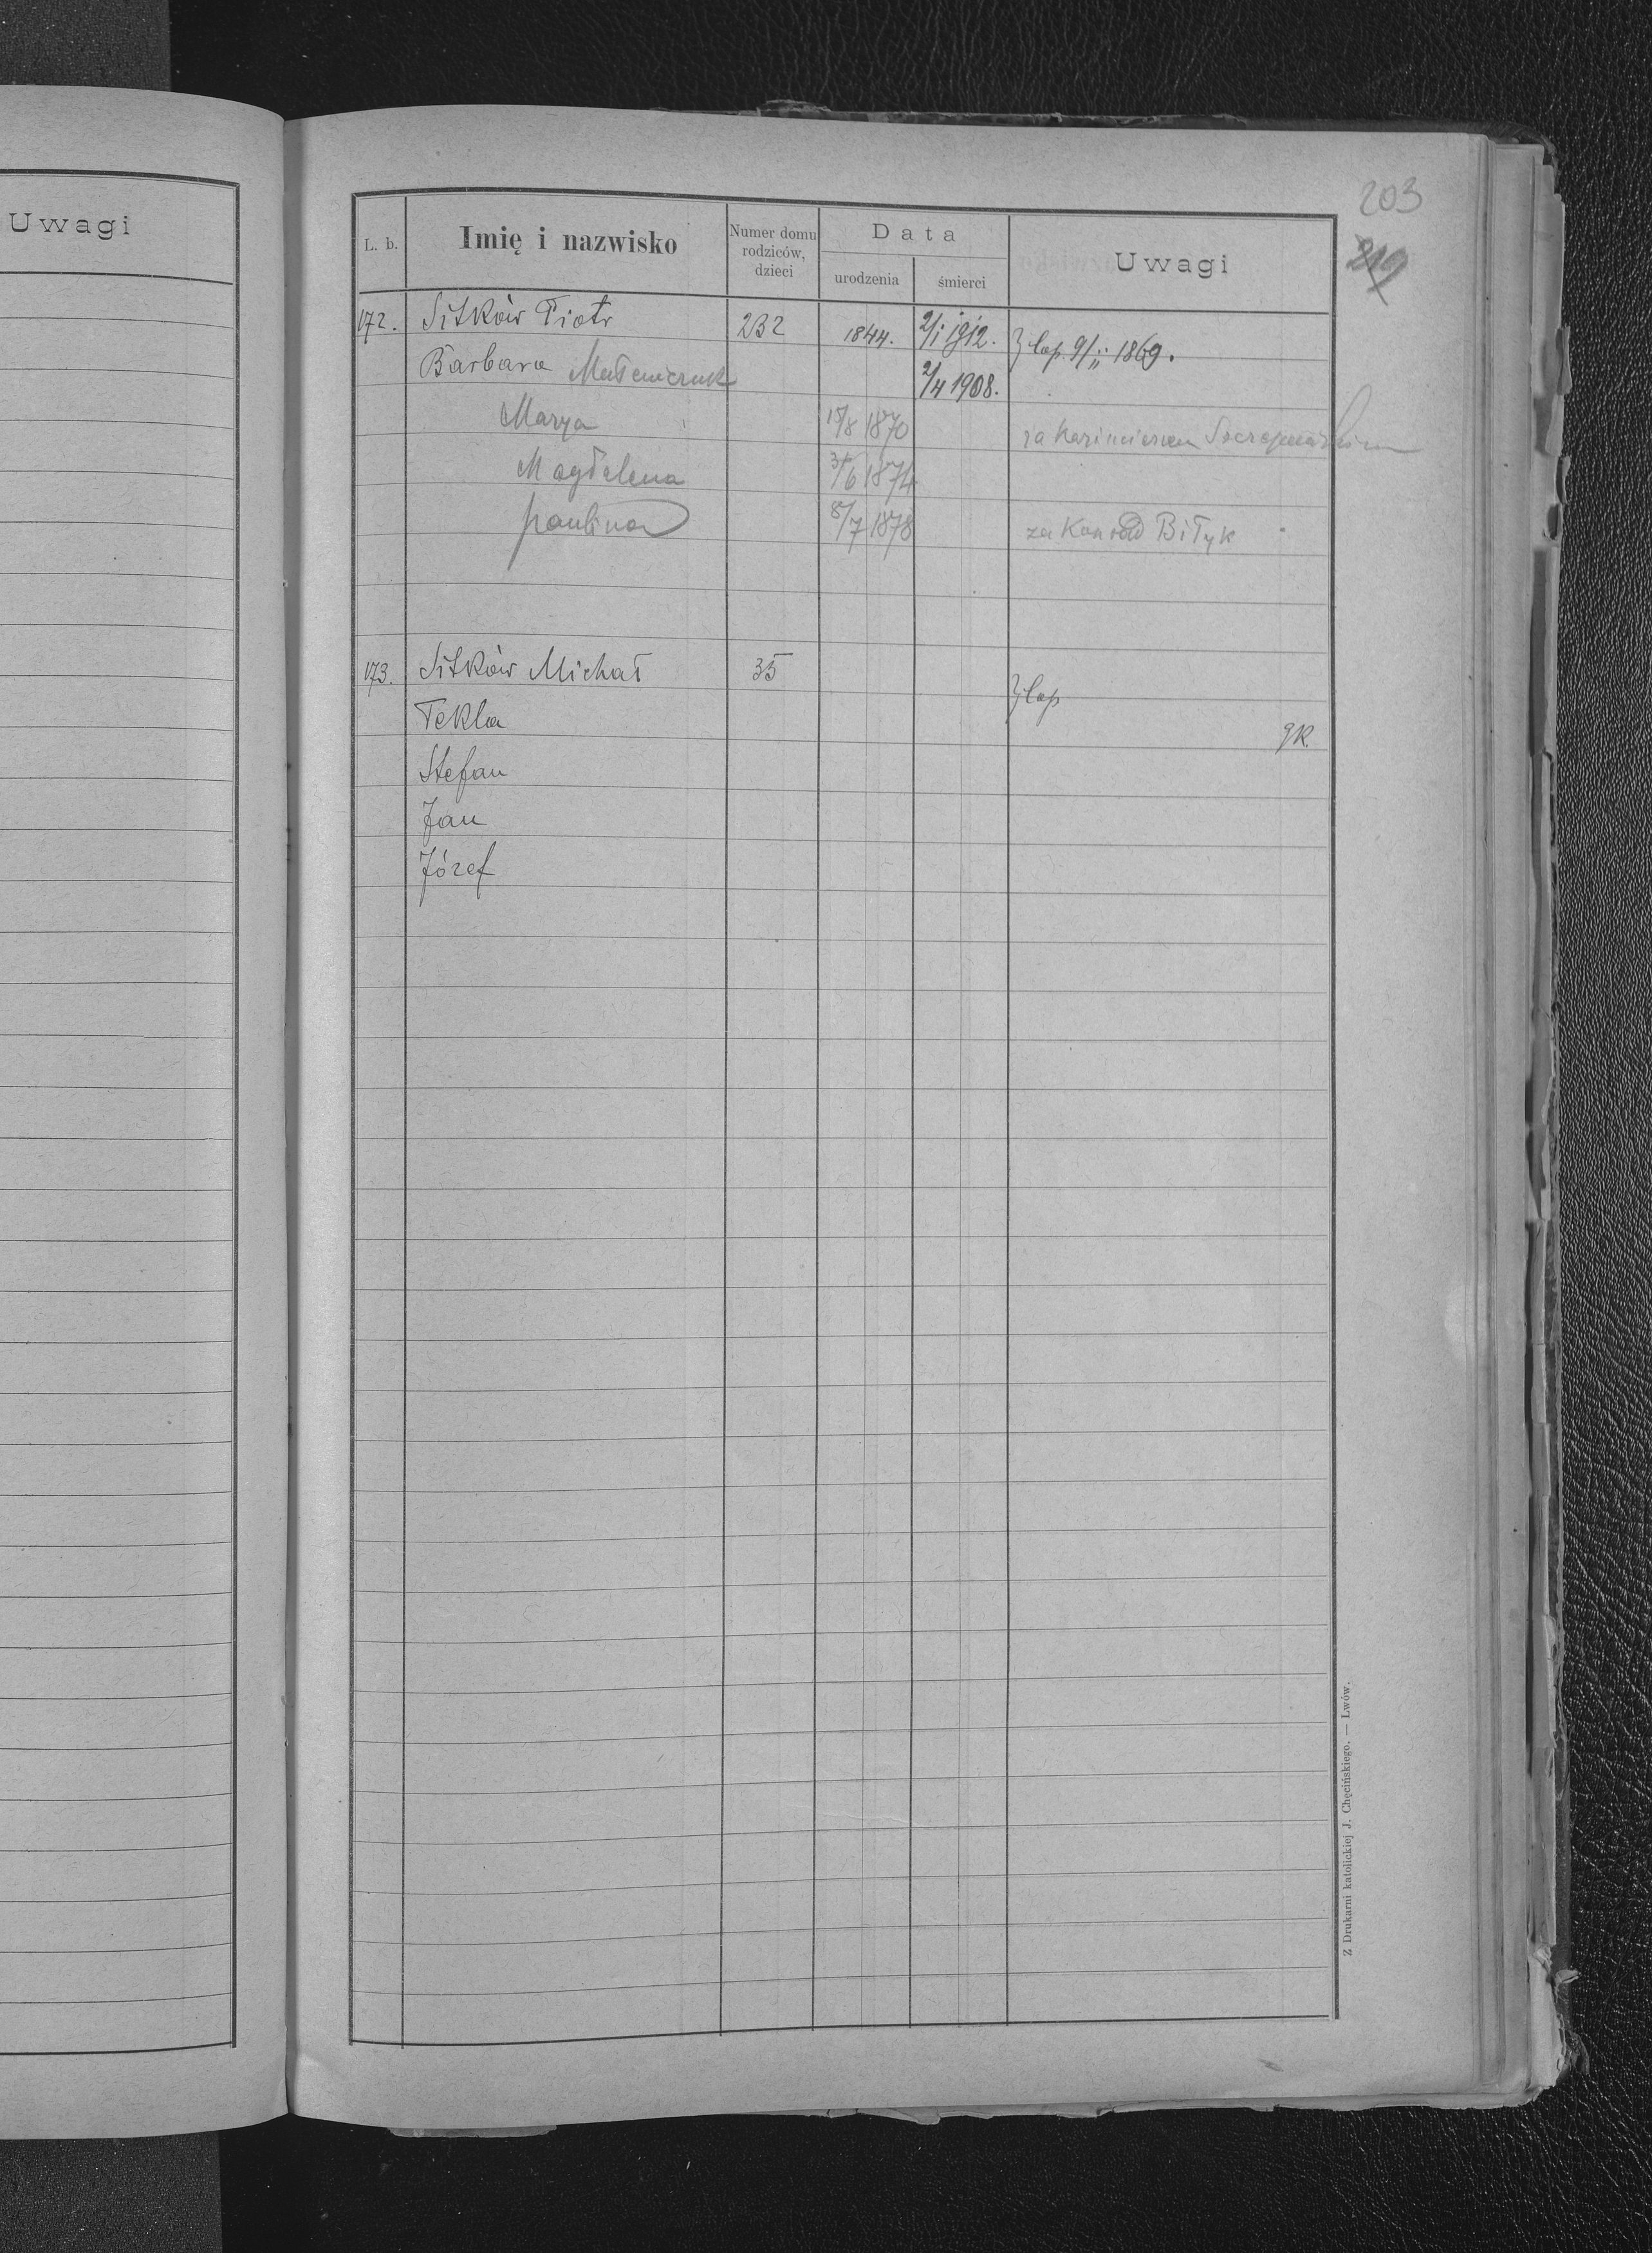 Uwagi
203
219
L. b.
Imię i nazwisko
Numer domu rodziców, dzieci
Data
urodzenia
śmierci
Uwagi
172. Sitków Piotr 232 1844. 2/1 1912. } cop. 9/11 1869.
Barbara 2/4 1908.
Marya 15/8 1870 za Kazimierzem
Magdalena 3/6 1874
Paulina 8/7 1878 za Konrad Biłyk
173. Sitków Michał 35 } cop
Tekla gk.
Stefan
Jan
Józef
Z Drukarni katolickiej J. Chęcińskiego. — Lwów.